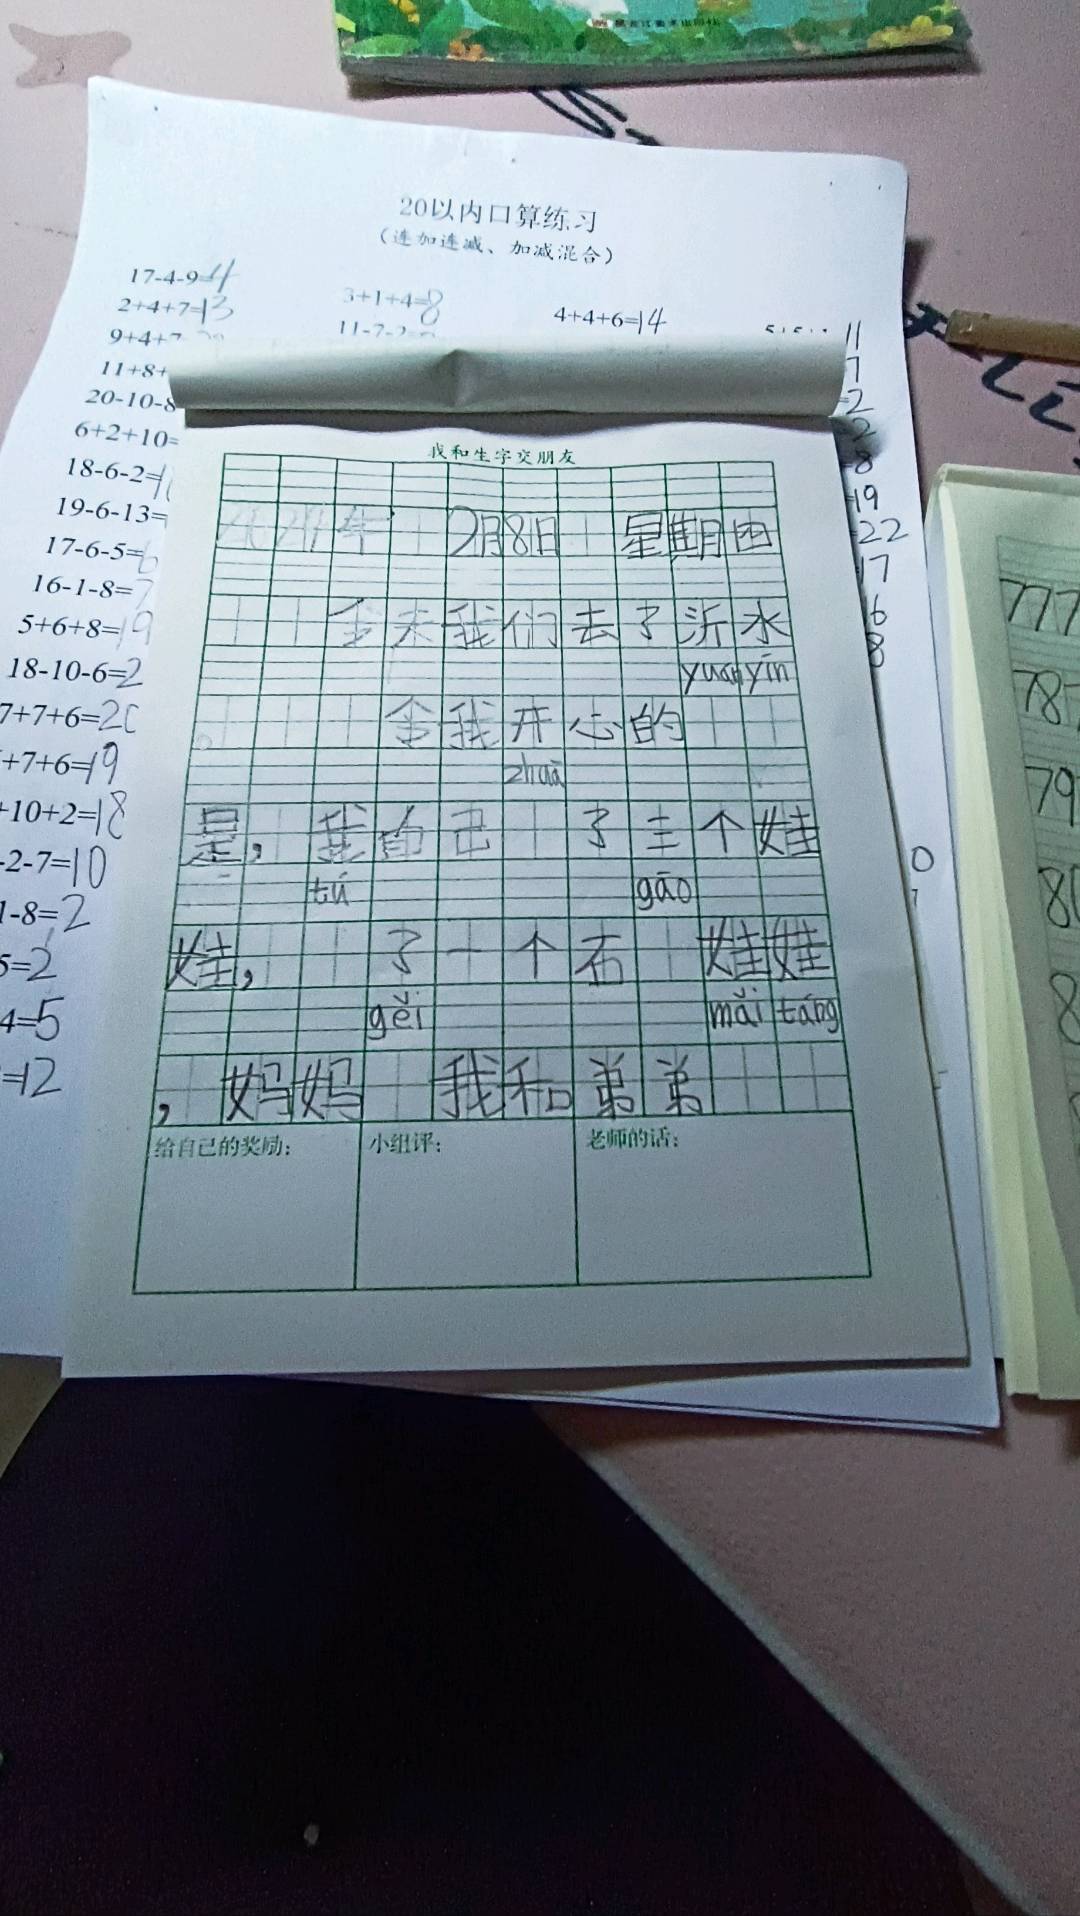 20以内口算练习
（连加连减、加减混合）
17-4-9=4
3+1+4=8
4+4+6=14
2+4+7=13
11-7-2=
11
9+4+7
11+8+
7
20-10-8
=2
6+2+10=
=2
18-6-2=
=8
19-6-13=
=19
17-6-5=6
=22
16-1-8=7
17
5+6+8=19
16
18-10-6=2
8
7+7+6=20
+7+6=19
+10+2=18
-2-7=10
1-8=2
5=2
4=5
=12
我和生字交朋友
2024年 2月8日 星期四
今天我们去了沂水
yuan yín
。 令我开心的
zhuā
是，我自己 了三个娃
tú gāo
娃， 了一个石 娃娃
gěi mǎi táng
， 妈妈 我和弟弟
给自己的奖励：
小组评：
老师的话：
777
78
79
8
8